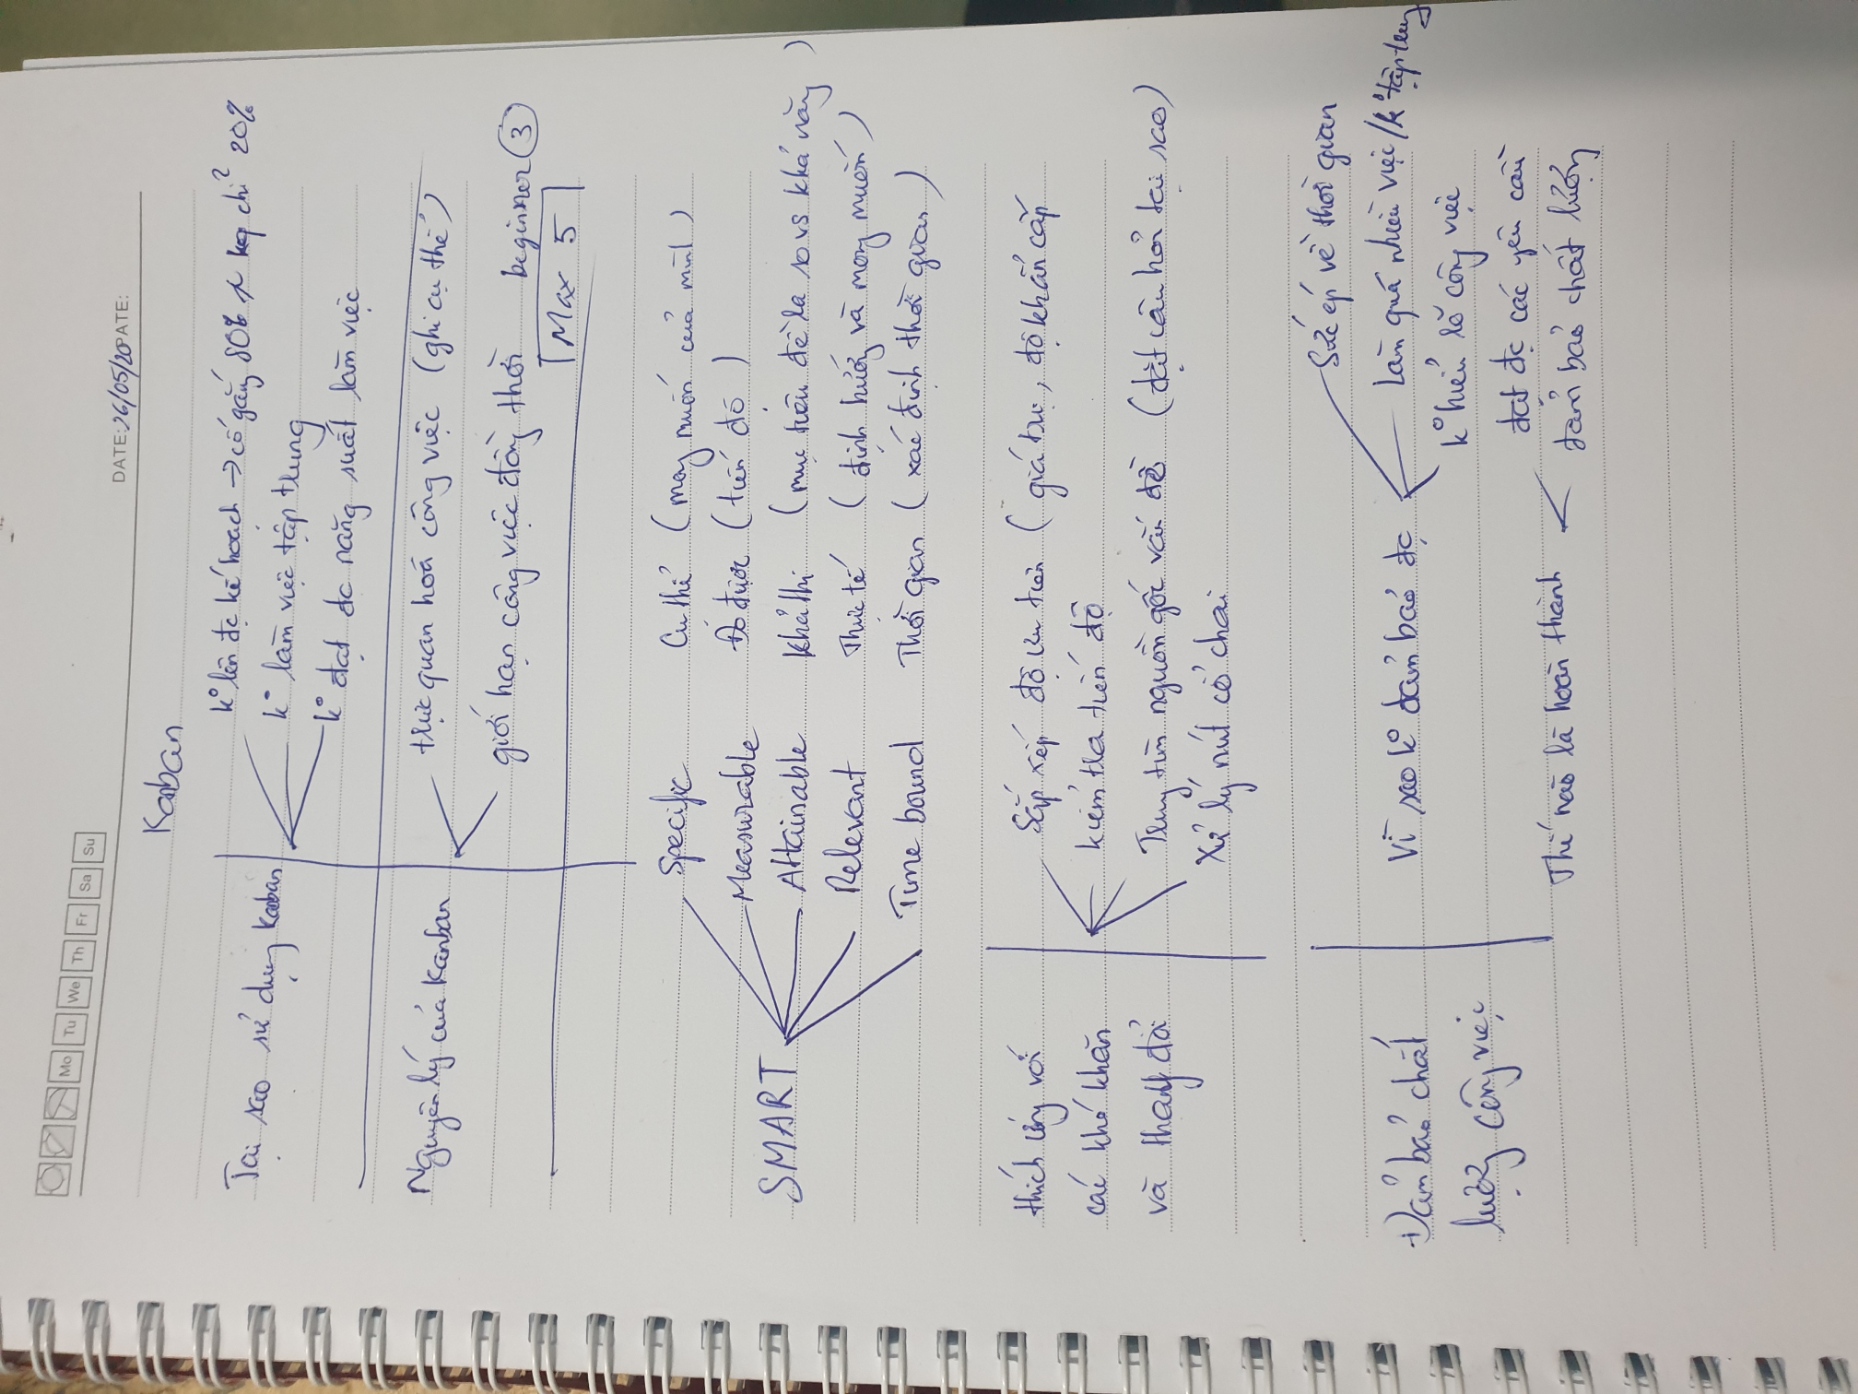 Mo Tu We Th Fr Sa Su
DATE: 26/05/20 PATE:
Kanban
Tại sao sử dụng Kanban
k° lên đc kế hoạch → cố gắng 80% kq chỉ 20%
k° làm việc tập trung
k° đạt đc năng suất làm việc
Nguyên lý của Kanban
trực quan hoá công việc (ghi cụ thể)
giới hạn công việc đồng thời beginner 3
Max 5
SMART
Specific Cụ thể (mong muốn của mình)
Measurable Đo được (tiến độ)
Attainable Khả thi (mục tiêu đề ra so vs khả năng)
Relevant Thực tế (định hướng và mong muốn)
Time bound Thời gian (xác định thời gian)
thích ứng với
các khó khăn
và thay đổi
Sắp xếp độ ưu tiên (giá trị, độ khẩn cấp
kiểm tra tiến độ
Truy tìm nguồn gốc vấn đề (đặt câu hỏi tại sao)
Xử lý nút cổ chai
Đảm bảo chất
lượng công việc
Vì sao k° đảm bảo đc
Sức ép về thời gian
Làm quá nhiều việc/k° tập trung
k° hiểu rõ công việc
Thế nào là hoàn thành
đạt đc các yêu cầu
đảm bảo chất lượng